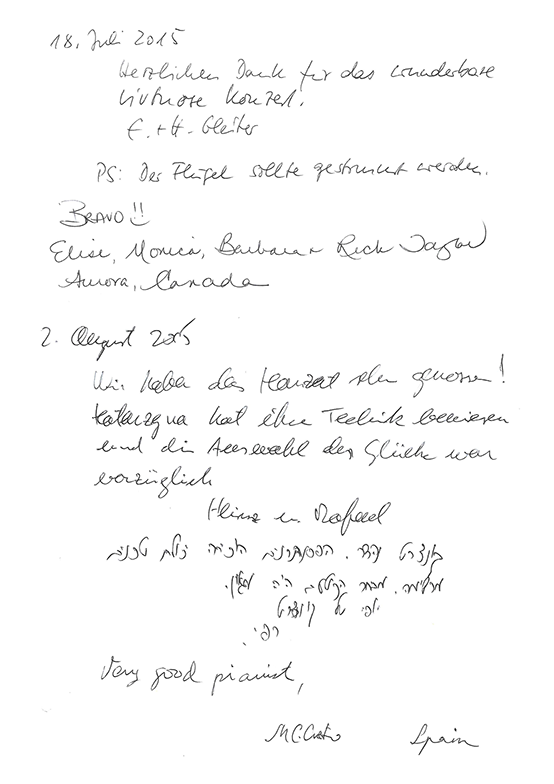 18. Juli 2015
Herzlichen Dank für das wunderbare
virtuose Konzert.
E. + H. Gleiter
PS: Der Flügel sollte gestimmt werden.
BRAVO!!
Elise, Monica, Barbara + Rick Taylor
Aurora, Canada
2. August 2015
Wir haben das Konzert sehr genossen!
Katarzyna hat ihre Technik bewiesen
und die Auswahl der Stücke war
vorzüglich
Heinz u.
קונצרט נהדר. הפסנתרנית הוכיחה יכולת טכנית
מרשימה. מבחר הקטעים היה מצוין.
יופי של קונצרט
רפי.
Very good pianist,
M C. Castro Spain